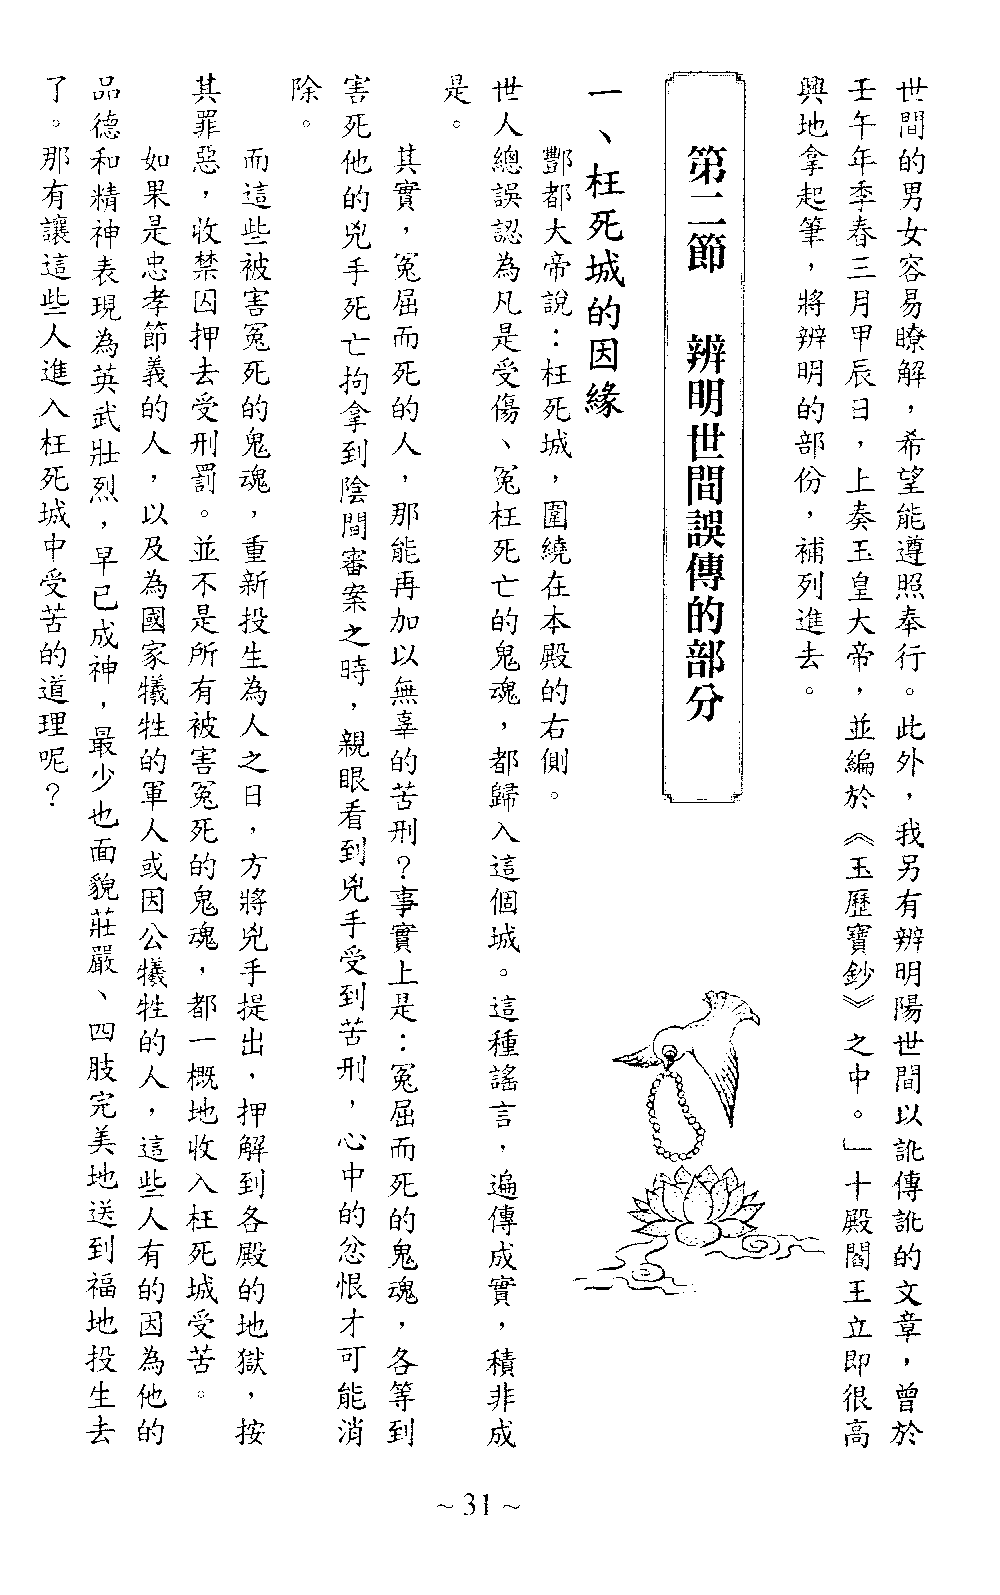 世間的男女容易瞭解，希望能遵照奉行。此外，我另有辨明陽世間以訛傳訛的文章，曾於
壬午年季春三月甲辰日，上奏玉皇大帝，並編於《玉歷寶鈔》之中。」十殿閻王立即很高
興地拿起筆，將辨明的部份，補列進去。
第二節　辨明世間誤傳的部分
一、枉死城的因緣
酆都大帝說：枉死城，圍繞在本殿的右側。
世人總誤認為凡是受傷、冤枉死亡的鬼魂，都歸入這個城。這種謠言，遍傳成實，積非成
是。
其實，冤屈而死的人，那能再加以無辜的苦刑？事實上是：冤屈而死的鬼魂，各等到
害死他的兇手死亡拘拿到陰間審案之時，親眼看到兇手受到苦刑，心中的忿恨才可能消
除。
而這些被害冤死的鬼魂，重新投生為人之日，方將兇手提出，押解到各殿的地獄，按
其罪惡，收禁囚押去受刑罰。並不是所有被害冤死的鬼魂，都一概地收入枉死城受苦。
如果是忠孝節義的人，以及為國家犧牲的軍人或因公犧牲的人，這些人有的因為他的
品德和精神表現為英武壯烈，早已成神，最少也面貌莊嚴、四肢完美地送到福地投生去
了。那有讓這些人進入枉死城中受苦的道理呢？
~ 31 ~